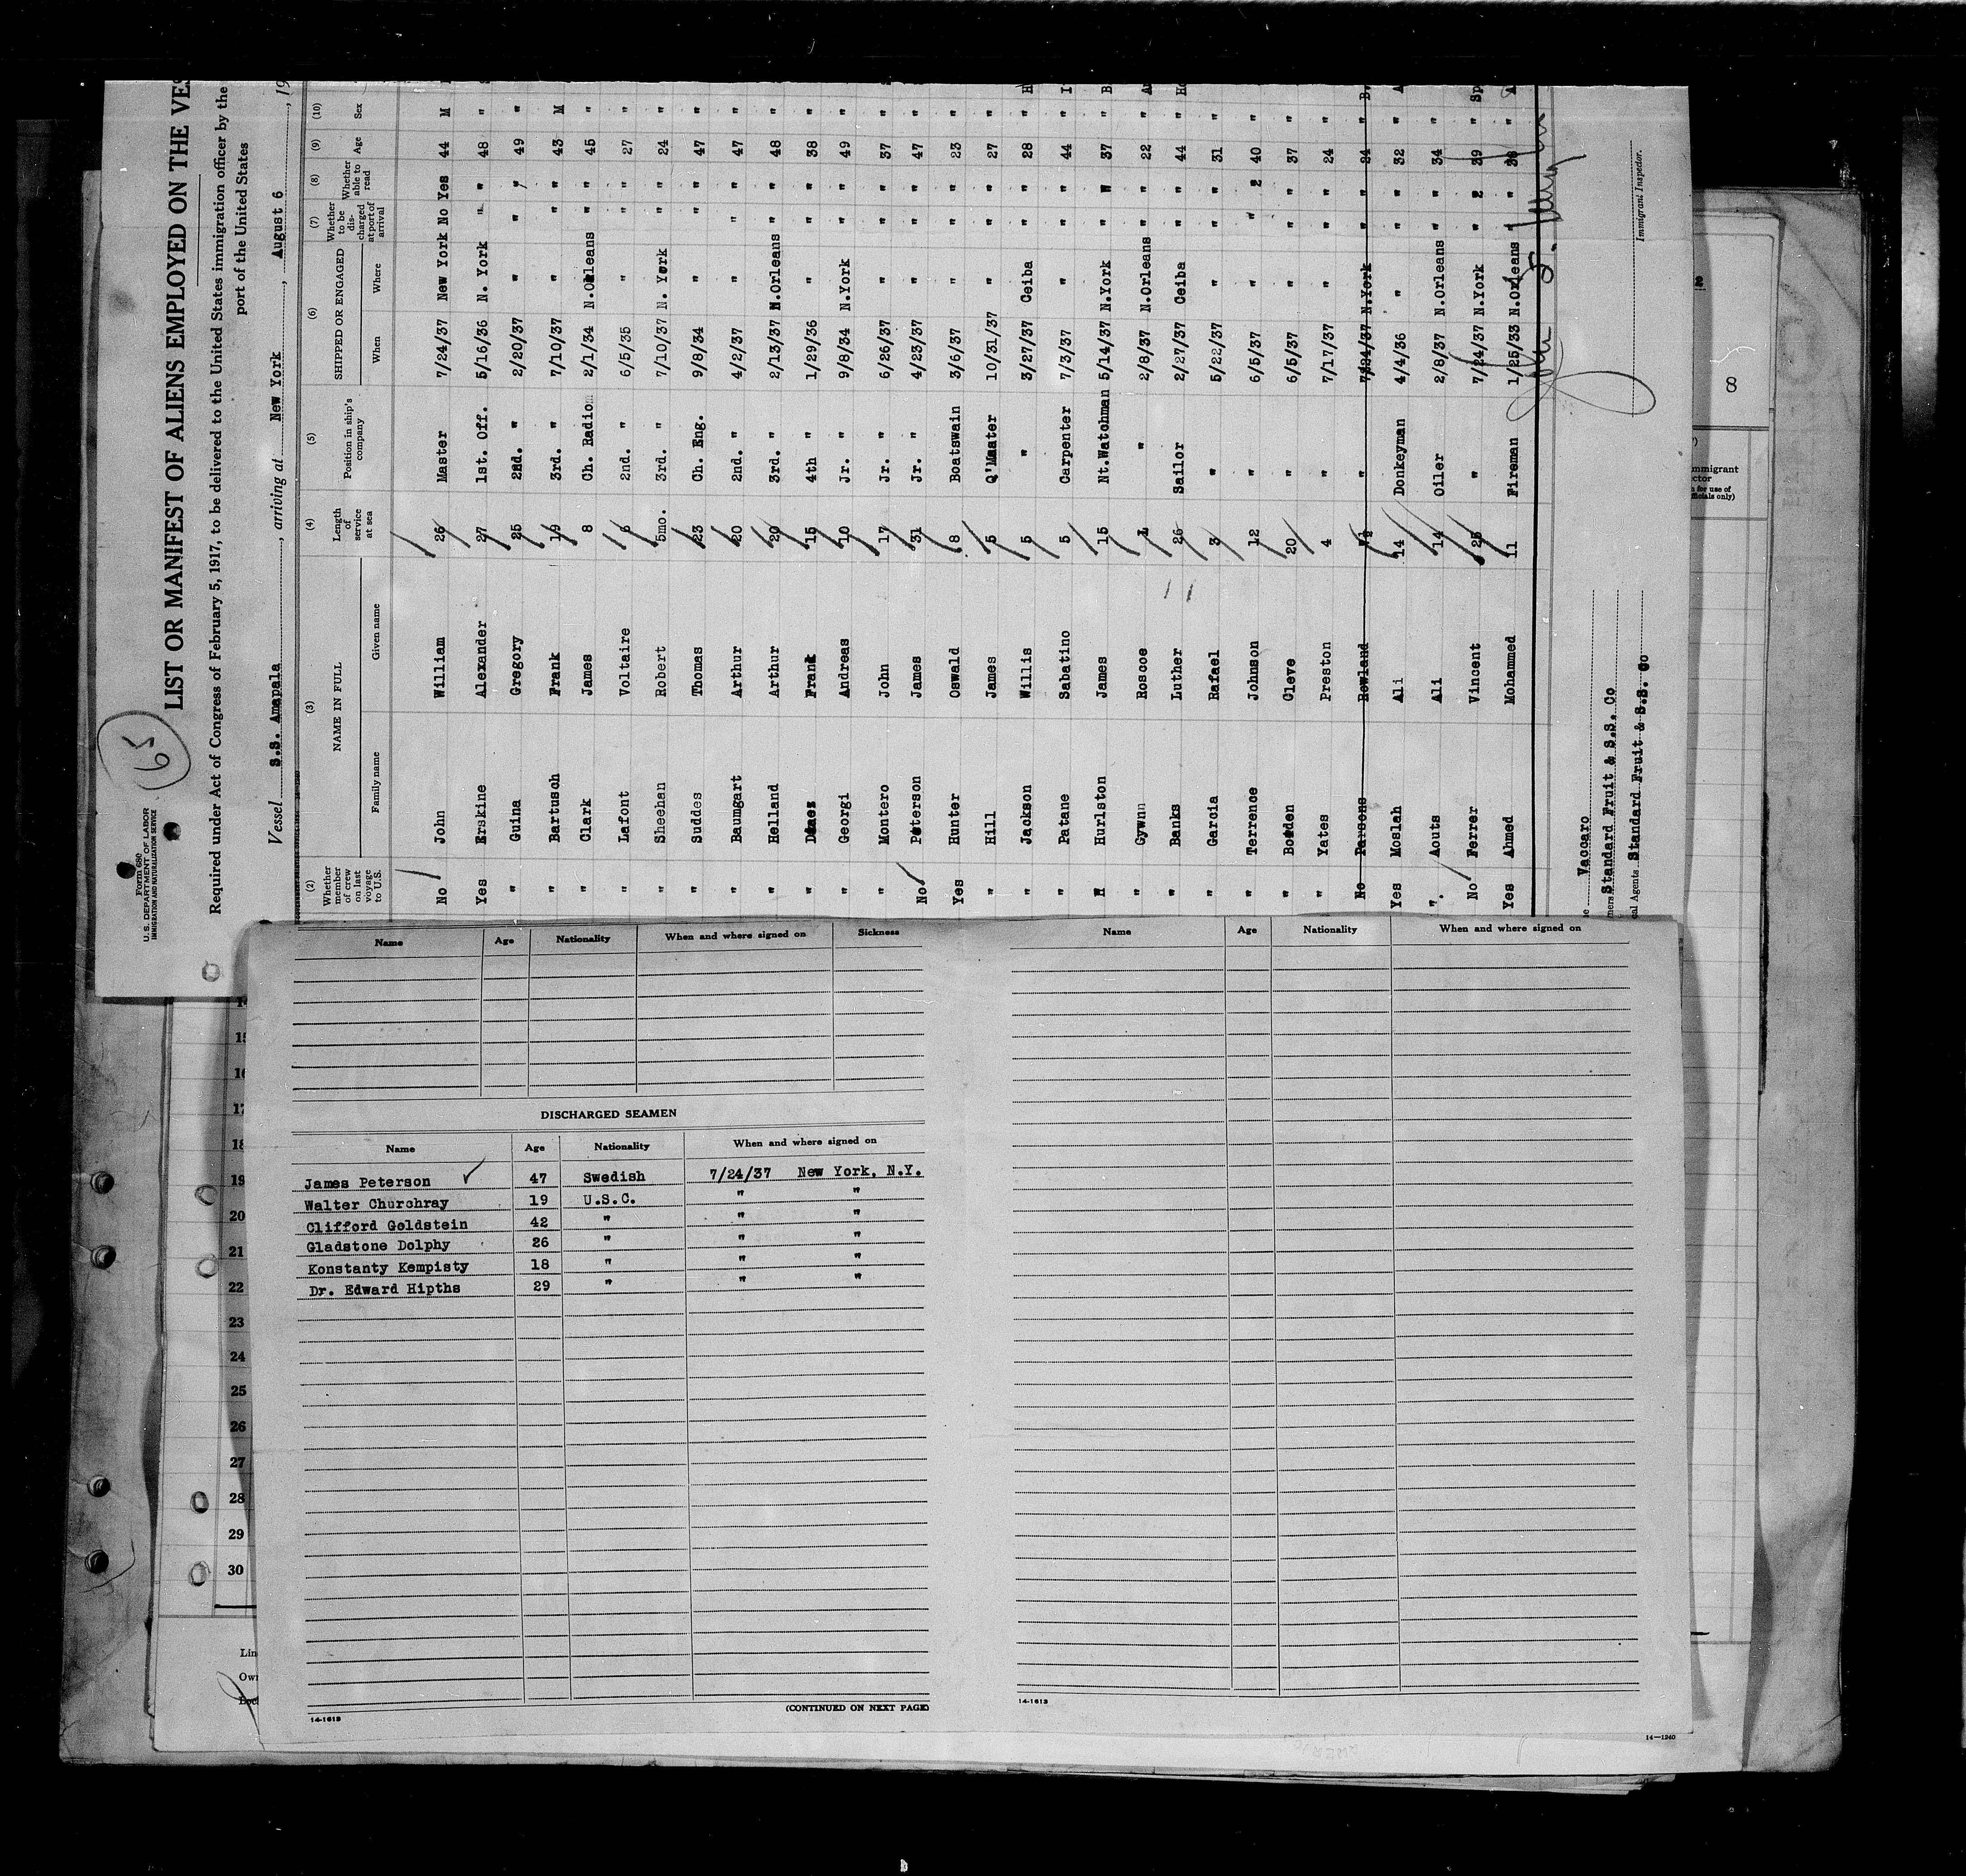 Form 680
U. S. DEPARTMENT OF LABOR
IMMIGRATION AND NATURALIZATION SERVICE
65
LIST OR MANIFEST OF ALIENS EMPLOYED ON THE VES
Required under Act of Congress of February 5, 1917, to be delivered to the United States immigration officer by the
port of the United States
Vessel S.S. Amapala , arriving at New York , August 6 , 19
(2) (3) (4) (5) (6) (7) (8) (9) (10)
Whether member of crew on last voyage to U.S. NAME IN FULL Length of service at sea Position in ship's company SHIPPED OR ENGAGED Whether to be discharged at port of arrival Whether able to read Age Sex
Family name Given name When Where
No John William 26 Master 7/24/37 New York No Yes 44 M
Yes Erskine Alexander 27 1st. Off. 5/16/36 N. York " " 48 "
" Guina Gregory 25 2nd. " 2/20/37 " " " 49 "
" Bartusch Frank 19 3rd. " 7/10/37 " " " 43 M
" Clark James 8 Ch. Radio 2/1/34 N.Orleans " " 45 "
" Lafont Voltaire 6 2nd. " 6/5/35 " " " 27 "
" Sheehan Robert 5mo. 3rd. " 7/10/37 N. York " " 24 "
" Suddes Thomas 23 Ch. Eng. 9/8/34 " " " 47 "
" Baumgart Arthur 20 2nd. " 4/2/37 " " " 47 "
" Helland Arthur 20 3rd. " 2/13/37 N.Orleans " " 48 "
" Frank 15 4th " 1/29/36 " " " 38 "
" Georgi Andreas 10 Jr. " 9/8/34 N.York " " 49 "
" Montero John 17 Jr. " 6/26/37 " " " 37 "
No Peterson James 31 Jr. " 4/23/37 " " " 47 "
Yes Hunter Oswald 8 Boatswain 3/6/37 " " " 23 "
" Hill James 5 Q'Master 10/31/37 " " " 27 "
" Jackson Willis 5 " 3/27/37 Ceiba " " 28 " H
" Patane Sabatino 5 Carpenter 7/3/37 " " " 44 " I
" Hurlston James 15 Nt.Watchman 5/14/37 N.York " " 37 " B
" Gywnn Roscoe 1 " 2/8/37 N.Orleans " " 22 "
" Banks Luther 26 Sailor 2/27/37 Ceiba " " 44 " Ho
" Garcia Rafael 3 " 5/22/37 " " " 31 "
" Terrence Johnson 12 " 6/5/37 " " " 40 "
" Boden Cleve 20 " 6/5/37 " " " 37 "
" Yates Preston 4 " 7/17/37 " " " 24 "
No Parsons Rowland " 7/24/37 N.York " " 24 " B.
Yes Moslah Ali 14 Donkeyman 4/4/36 " " " 32 " A
" Aouts Ali 14 Oiler 2/8/37 N.Orleans " " 34 "
No Ferrer Vincent 25 " 7/24/37 N.York " " 39 " Sp
Yes Ahmed Mohammed 11 Fireman 1/25/33 N.Orleans " " 38 " A
Immigrant Inspector.
Vaccaro
Standard Fruit & S.S. Co
al Agents Standard Fruit & S.S. Co
8
mmigrant
ctor
for use of
fficials only)
15
16
17
18
19
20
21
22
23
24
25
26
27
28
29
30
Lin
Own
Loc
Name Age Nationality When and where signed on Sickness
DISCHARGED SEAMEN
Name Age Nationality When and where signed on
James Peterson 47 Swedish 7/24/37 New York, N.Y.
Walter Churchray 19 U.S.C. " "
Clifford Goldstein 42 " " "
Gladstone Dolphy 26 " " "
Konstanty Kempisty 18 " " "
Dr. Edward Hipths 29 " " "
(CONTINUED ON NEXT PAGE)
14-1613
Name Age Nationality When and where signed on
14-1613
14—1240